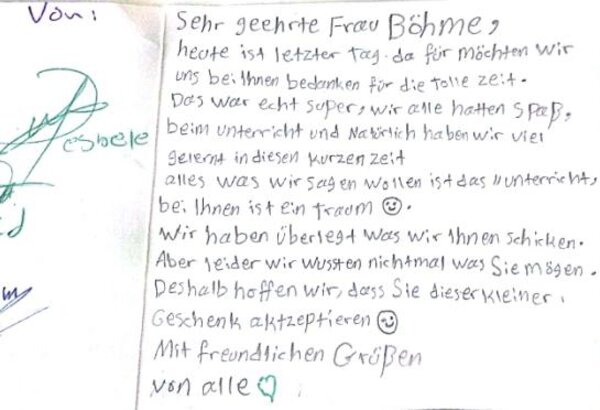 Von:
esbele
Sehr geehrte Frau Böhme,
heute ist letzter Tag. da für möchten wir
uns bei Ihnen bedanken für die Tolle zeit.
Das war echt super, wir alle hatten Spaß,
beim unterricht und Natürlich haben wir viel
gelernt in diesen kurzen zeit
alles was wir sagen wollen ist das "unterricht,
bei Ihnen ist ein Traum ☺.
Wir haben überlegt was wir Ihnen schicken.
Aber leider wir wussten nichtmal was Sie mögen.
Deshalb hoffen wir, dass Sie dieser kleiner.
Geschenk aktzeptieren ☺
Mit freundlichen Größen
von alle ♡